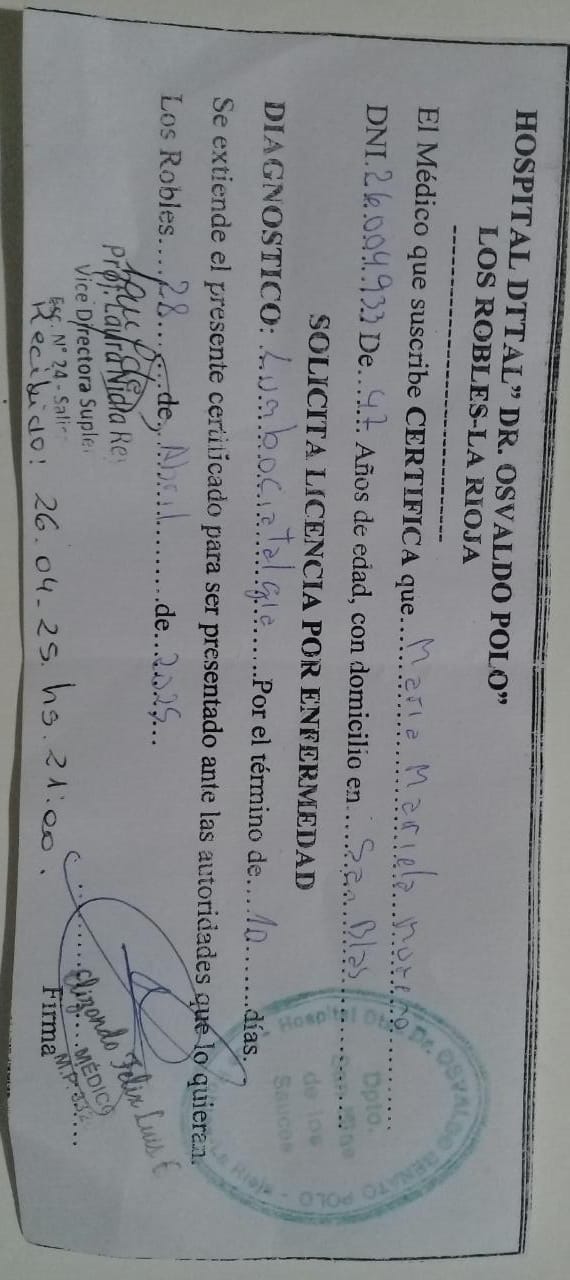 HOSPITAL DTTAL" DR. OSVALDO POLO"
LOS ROBLES-LA RIOJA
El Médico que suscribe CERTIFICA que.... Maria Mariela Moreno
DNI. 26.004.933 De.. 47 Años de edad, con domicilio en.... San Blas
SOLICITA LICENCIA POR ENFERMEDAD
DIAGNOSTICO: Lumbociatalgia Por el término de.... 10 ......días.
Se extiende el presente certificado para ser presentado ante las autoridades que lo quieran.
Los Robles.... 28 ......de.. Abril ........de... 2025...
Prof. Laura Nidia
Vice Directora Suplen
Esc. N° 24 - Sali
Recibido! 26.04-25. hs. 21:00.
Felix Luis E
MÉDICO
M.P. 332
Firma
Hospital Dttal Dr. OSVALDO RENATO POLO
Dpto.
de los
Sauces
La Rioja